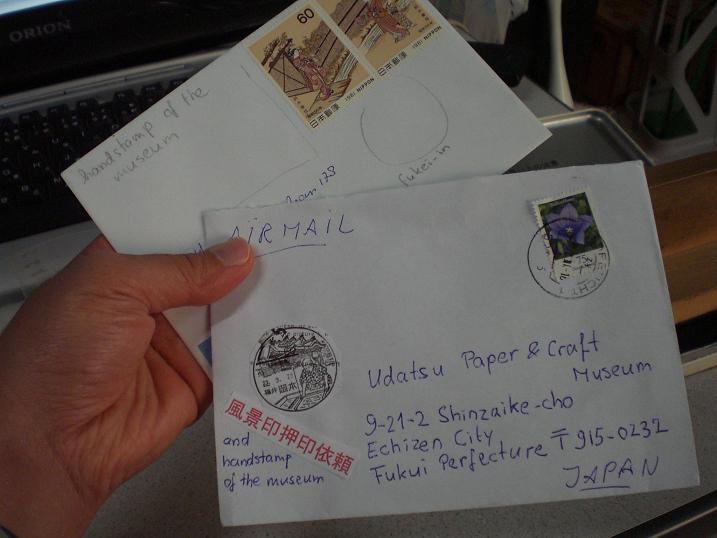 ORION
60
NIPPON 1981
日本郵便
NIPPON 1981
日本郵便
handstamp of the
museum
fukei-in
AIRMAIL
75
Udatsu Paper & Craft
Museum
9-21-2 Shinzaike-cho
Echizen City
Fukui Perfecture 〒915-0232
JAPAN
福井 岡本
風景印押印依頼
and
handstamp
of the museum